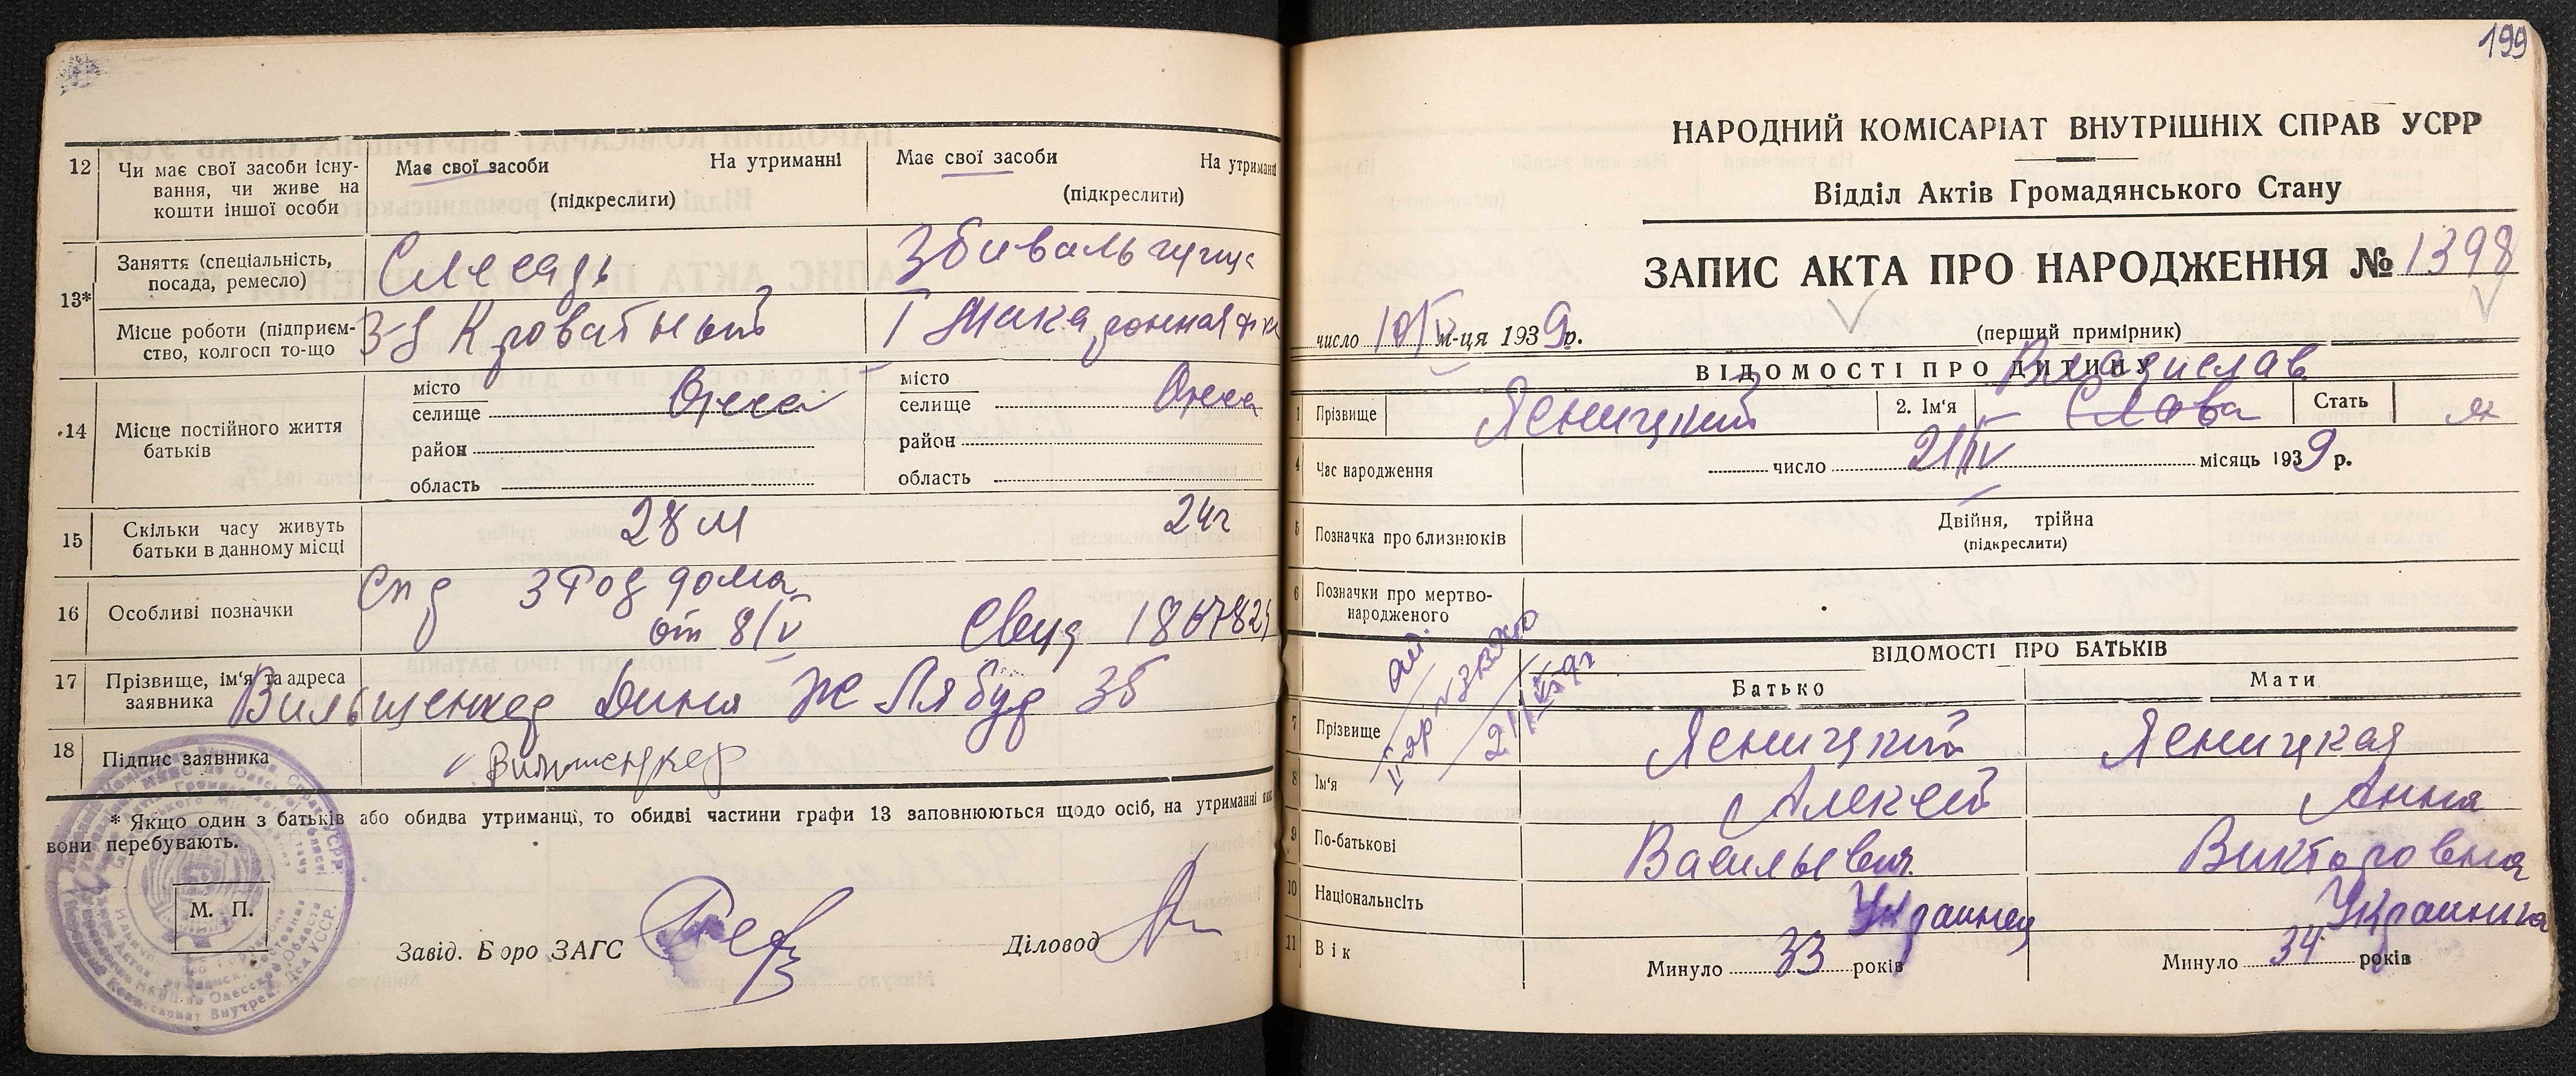 12 Чи має свої засоби існу-
вання, чи живе на
кошти іншої особи
Має свої засоби На утриманні
(підкреслити)
Має свої засоби На утриманні
(підкреслити)
13*
Заняття (спеціальність,
посада, ремесло)
Слесарь
Збивальчица
Місце роботи (підприєм-
ство, колгосп то-що
З-д Кроватный
I Макаронная ф-ка
14 Місце постійного життя
батьків
місто
селище Одесса
район
область
місто
селище Одесса
район
область
15 Скільки часу живуть
батьки в данному місці
28 м
24 г
16 Особливі позначки
Спр 3 Род дома
от 8/V Свид 186782
17 Прізвище, ім'я та адреса
заявника
Вильшенкер Дина
36
18 Підпис заявника
Вильшенкер
* Якщо один з батьків або обидва утриманці, то обидві частини графи 13 заповнюються щодо осіб, на утриманні яких
вони перебувають.
М. П.
Завід. Бюро ЗАГС
Діловод
199
НАРОДНИЙ КОМІСАРІАТ ВНУТРІШНІХ СПРАВ УСРР
Відділ Актів Громадянського Стану
ЗАПИС АКТА ПРО НАРОДЖЕННЯ № 1398
число 10/V м-ця 1939 р.
(перший примірник)
ВІДОМОСТІ ПРО ДИТИНУ
Владислав
1 Прізвище Ясницкий 2. Ім'я Слава Стать м
4 Час народження число 21/IV місяць 1939 р.
5 Позначка про близнюків
Двійня, трійна
(підкреслити)
6 Позначки про мертво-
народженого
ВІДОМОСТІ ПРО БАТЬКІВ
Батько Мати
7 Прізвище Ясницкий Ясницкая
8 Ім'я Алексей Анна
9 По-батькові Васильевич Викторовна
10 Національнсіть Украинец Украинка
11 Вік Минуло 33 років Минуло 34 років